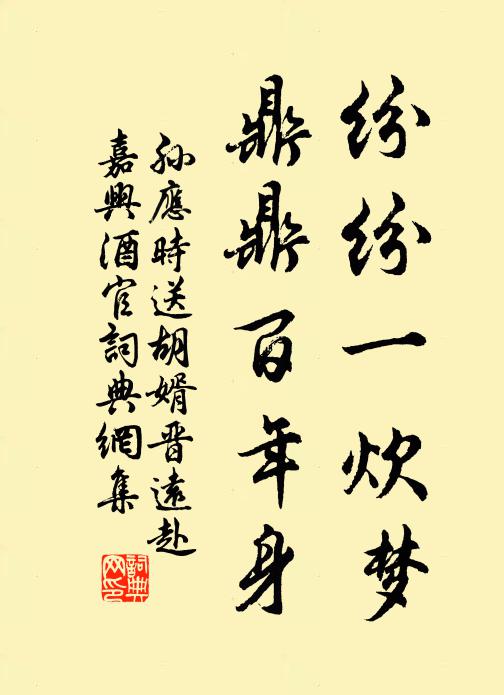 紛紛一炊梦
鼎鼎百年身
孫應時送胡婿晋遠赴
嘉興酒官詞典網集
詞典网印